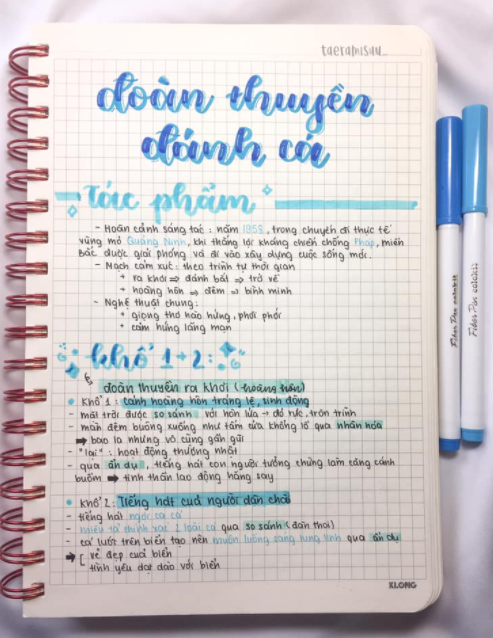 taetamisuu_
đoàn thuyền
đánh cá
tác phẩm
- Hoàn cảnh sáng tác : năm 1958, trong chuyến đi thực tế
vùng mỏ Quảng Ninh, khi thắng lợi kháng chiến chống Pháp, miền
Bắc được giải phóng và đi vào xây dựng cuộc sống mới.
- Mạch cảm xúc : theo trình tự thời gian
+ ra khơi ⇒ đánh bắt ⇒ trở về
+ hoàng hôn ⇒ đêm ⇒ bình minh
- Nghệ thuật chung :
+ giọng thơ hào hứng, phơi phới
+ cảm hứng lãng mạn
khổ 1+2 :
đoàn thuyền ra khơi (hoàng hôn)
• Khổ 1 : cảnh hoàng hôn tráng lệ, sinh động
- mặt trời được so sánh với hòn lửa → đỏ rực, tròn trĩnh
- màn đêm buông xuống như tấm cửa khổng lồ qua nhân hóa
➡ bao la nhưng vô cùng gần gũi
- "lại" : hoạt động thường nhật
- qua ẩn dụ, tiếng hát con người tưởng chừng làm căng cánh
buồm ➡ tinh thần lao động hăng say
• Khổ 2 : Tiếng hát của người dân chài
- tiếng hát ngợi ca cá
- miêu tả chính xác 2 loài cá qua so sánh (đoàn thoi)
- cá lướt trên biển tạo nên muôn luồng sáng lung linh qua ẩn dụ
➡ [ vẻ đẹp của biển
tình yêu dạt dào với biển
KLONG
Fiber Pen colorkit
Fiber Pen colorkit